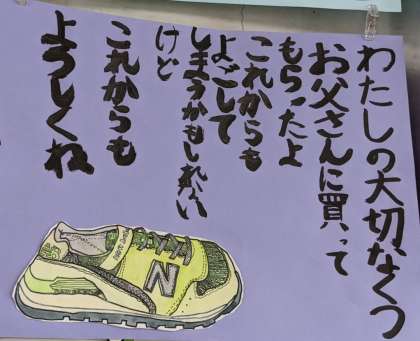 わたしの大切なくつ
お父さんに買って
もらったよ
これからも
よごして
しまうかもしれない
けど
これからも
よろしくね
N